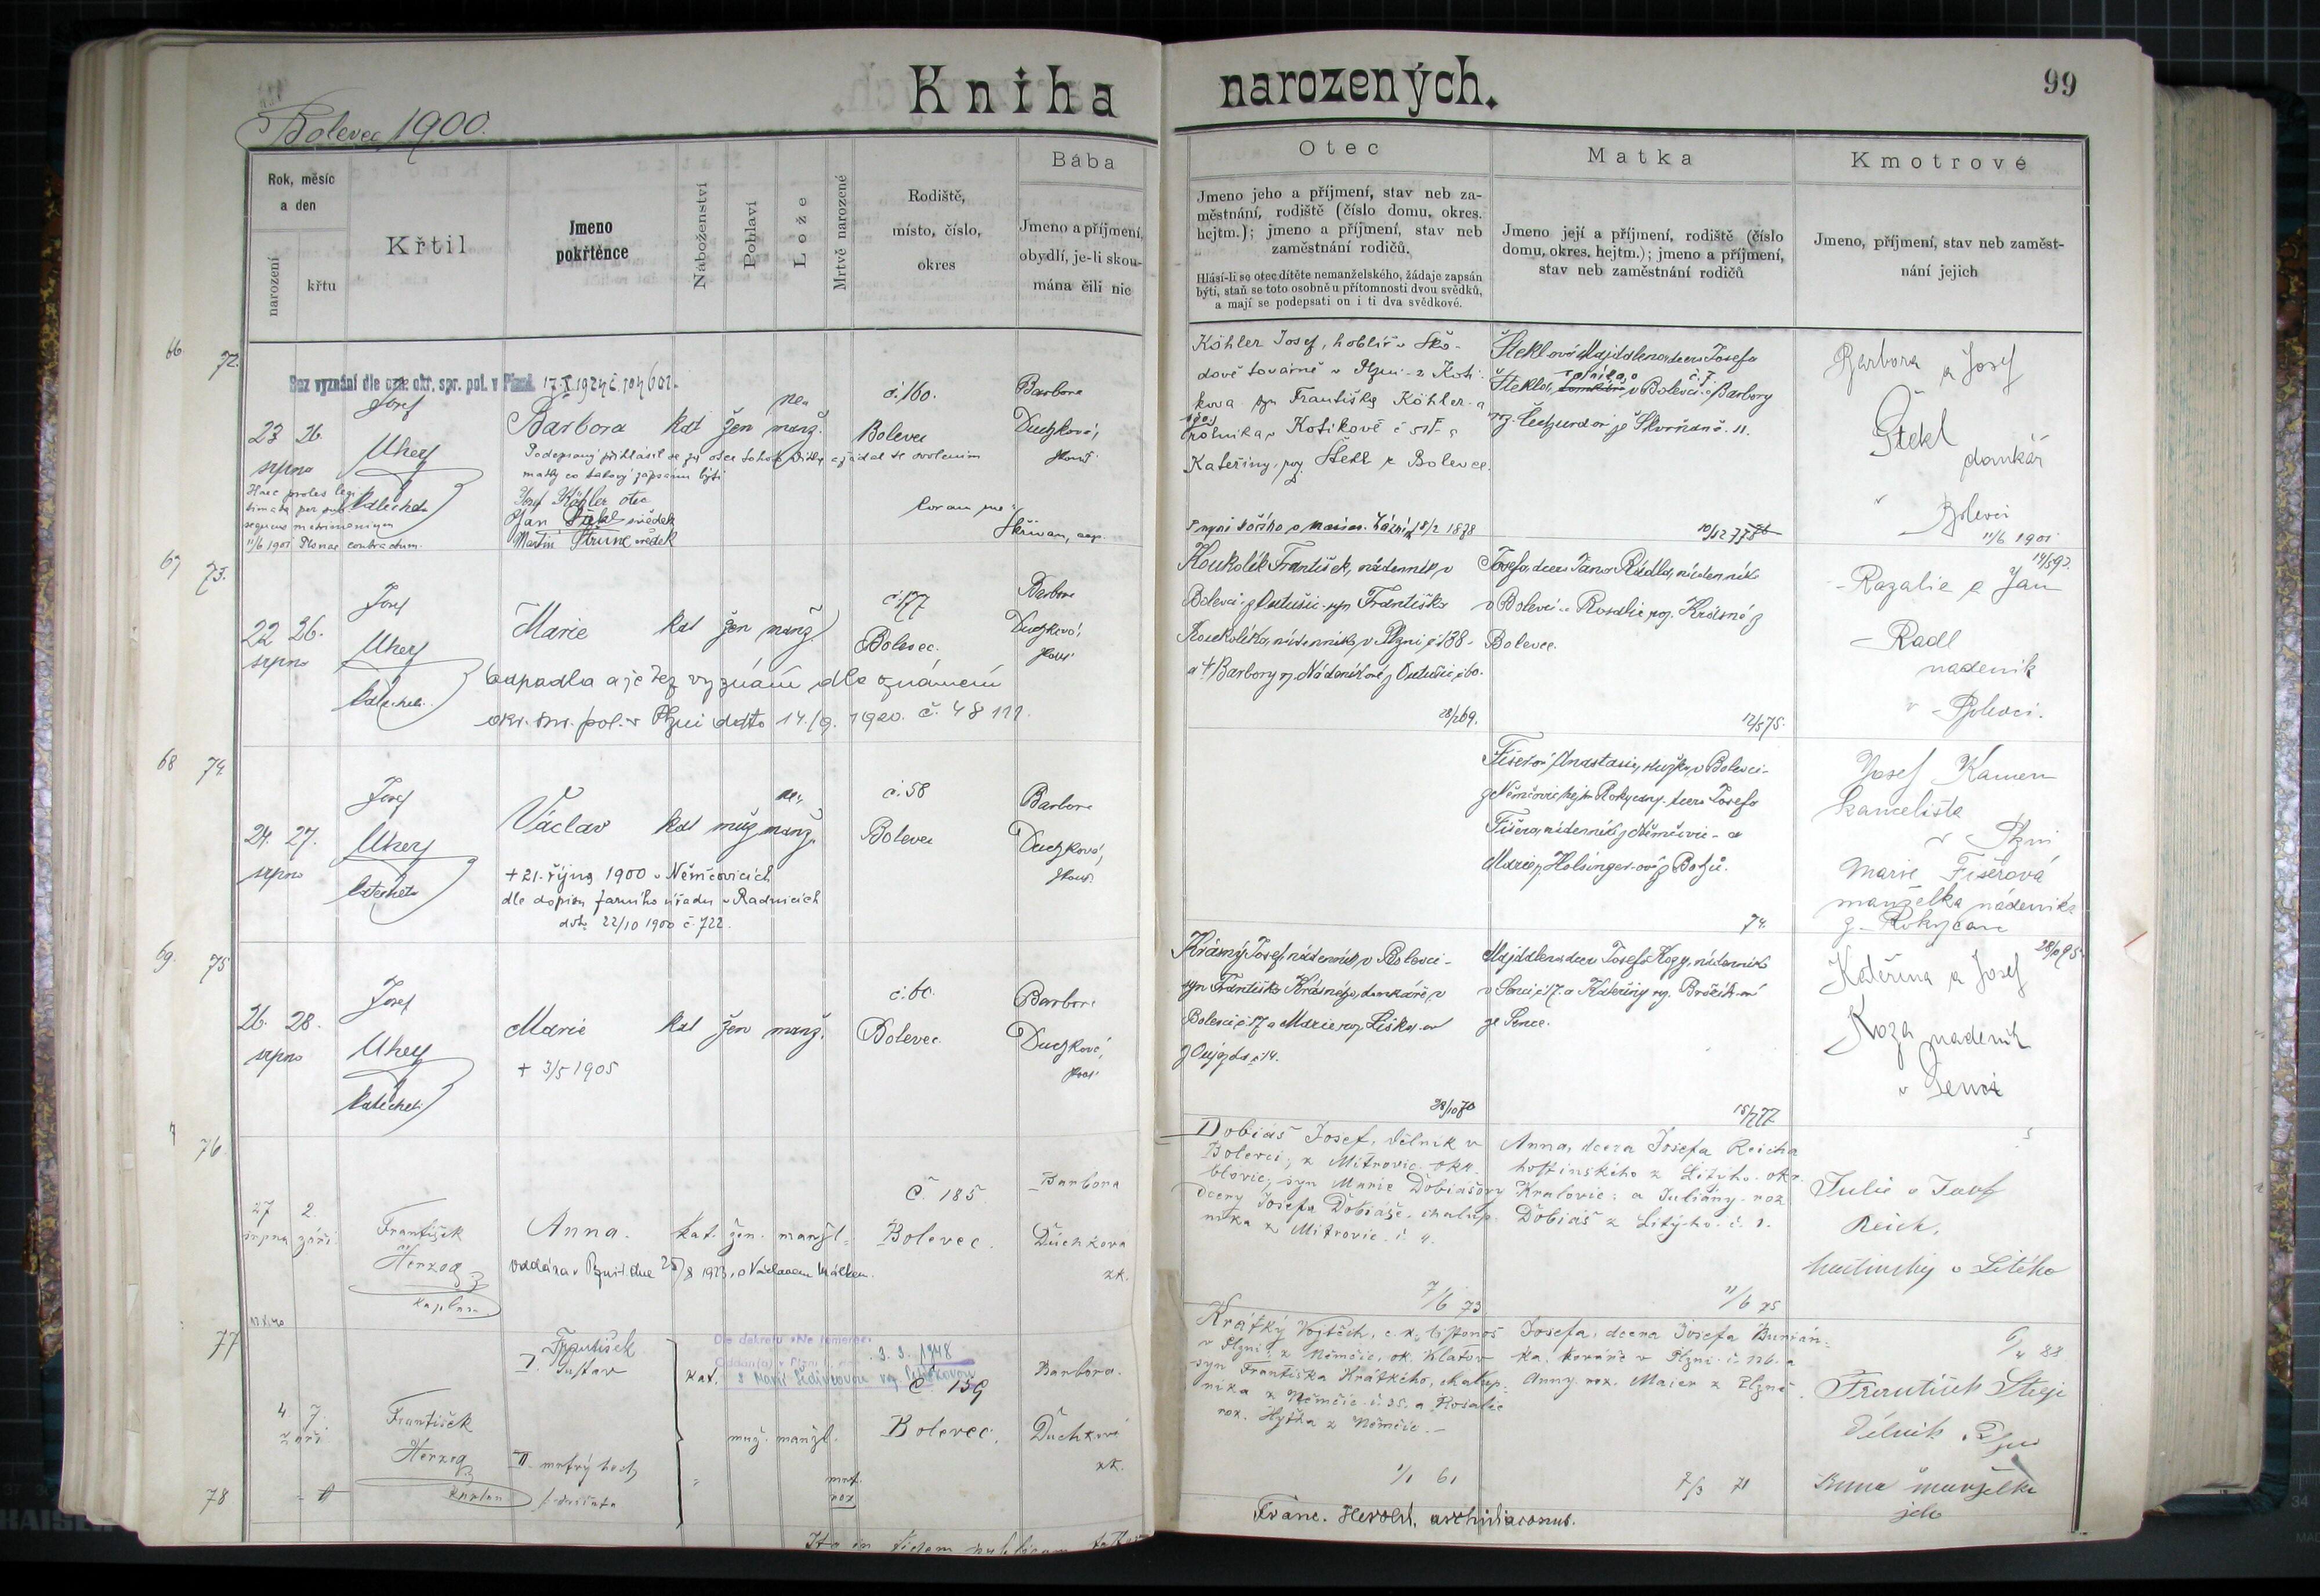 Kniha narozených.
99
Bolevec 1900.
Rok, měsíc
a den
narození
křtu
Křtil
Jmeno
pokřtěnce
Náboženství
Pohlaví
Lože
Mrtvě narozené
Rodiště,
místo, číslo,
okres
Bába
Jmeno a příjmení,
obydlí, je-li skou-
mána čili nic
Otec
Jmeno jeho a příjmení, stav neb za-
městnání, rodiště (číslo domu, okres.
hejtm.); jmeno a příjmení, stav neb
zaměstnání rodičů.
Hlásí-li se otec dítěte nemanželského, žádaje zapsán
býti, staň se toto osobně u přítomnosti dvou svědků,
a mají se podepsati on i ti dva svědkové.
Matka
Jmeno její a příjmení, rodiště (číslo
domu, okres, hejtm.); jmeno a příjmení,
stav neb zaměstnání rodičů
Kmotrové
Jmeno, příjmení, stav neb zaměst-
nání jejich
66
72.
Bez vyznání dle ozn. okr. spr. pol. v Plzni
23 26.
srpna
Josef
Uherý
katecheta
Barbora kat žen manž.
ne
Podepsaný přihlásil se za otce tohoto dítka a žádal se svolením
matky co takový zapsán býti
Josef Köhler otec
Jan Štekl svědek
Martin svědek
Haec proles legi-
timata per sub-
sequens matrimonium
11/6 1901 Plsnae contractum.
č. 160.
Bolevec
Coram me:
Skřivan, cap.
Barbora
Duchková,
zkouš.
Köhler Josef, hoblíř v Ško-
dově továrně v Plzni z Koti-
kova syn Františka Köhler-a
rolníka v Kotikově č 51 a
Kateřiny roz. Štekl z Bolevce.
18/2 1878
Šteklová Majdalena dcera Josefa
Štekla, v Bolevci a Barbory
roz. ze Skvrňan č. 11.
Barbora a Josef
Štekl
domkář
v Bolevci
11/6 1901
67
73.
22 26.
srpna
Josef
Uherý
katecheta
Marie kat žen manž
odpadla a je bez vyznání dle oznámení
okr. spr. pol. v Plzni ddto 14./9. 1920. č. 48111.
č. 177
Bolevec.
Barbora
Duchková,
zkouš.
Koukolík František, nádenník v
Bolevci z Dražovic syn Františka
Koukolíka, nádenníka v Plzni č 138 -
28/2 69.
Josefa, dcera Jana Rádla, nádenníka
v Bolevci a Rosalie roz. Krásné z
Bolevce.
12/5 75.
Rozalie a Jan
Radl
nadeník
v Bolevci.
68
74.
24. 27.
srpna
Josef
Uherý
katecheta
Václav kat muž manž.
ne
+ 21. října 1900 v Němčovicích
dle dopisu farního úřadu v Radnicích
ddto 22/10 1900 č. 722.
č. 58
Bolevec
Barbora
Duchková,
zkouš.
Fišerová Anastasie, služka v Bolevci -
z Němčovic, hejtm Rokycany. dcera Josefa
Fišera, nádenníka z Němčovic - a
Marie roz. Holsinger-ové z
74.
Josef Kamen
kancelista
v Plzni
Marie Fišerová
manželka nádeníka
z Rokycan
69.
75
26. 28.
srpna
Josef
Uherý
katecheta
Marie kat žen manž.
+ 3/5 1905
č. 60.
Bolevec.
Barbora
Duchková,
zkouš.
Krásný Josef, nádenník, v Bolevci -
syn Františka Krásného, domkáře, v
Bolevci č 17 a Marie roz. Liška-ové
z Oujezda č 14.
28/10 70
Majdalena dcera Josefa Kozy, nádenníka
v Senci č 17. a Kateřiny roz.
ze Sence.
15/7 77
28/10 95
Kateřina a Josef
Koza nadeník
v Senci
76.
27 2.
srpna září
František
Herzog
kaplan
Anna. kat. žen. manžl.
oddána v Plzni dne 25/8 1923, s Václavem Málkem.
Č. 185.
Bolevec.
Barbora
Duchková
zk.
Dobiáš Josef, dělník v
Bolevci, z Mitrovic okr.
blovic, syn Marie Dobiášovy
dcery Josefa Dobiáše, chalup-
níka z Mitrovic č. 4.
7/6 73.
Anna, dcera Josefa Reicha
hostinského z Litýho, okr.
Kralovic; a Juliany roz.
Dobiáš z Litýho č. 1.
11/6 75
Julie a Josef
Reich,
hostinský v Litého
77
4 7.
září
František
Herzog
kaplan
I. František
Gustav
kat.
muž. manžl.
Dle dekretu »Ne temere«
Oddán(a) v Plzni
3. 3. 1948
s Marií Šedivcovou
II mrtvý hoch
nedonošeňata
mrt.
roz
78
Č 139
Bolevec.
Barbora.
Duchková
zk.
Krátký Vojtěch, c. k. listonoš
v Plzni z Němčic, ok. Klatov
syn Františka Krátkého, chalup-
níka z Němčic č. 25. a Rosalie
roz. Hyťha z Němčic. -
1/1 61
Josefa, dcera Josefa Burián-
ka, kováře v Plzni č. 126. a
Anny roz. Maier z Plzně.
7/3 71
6/4 88
František
dělník Plzni
Anna manželka
jeho
Franc. Herold, archidiaconus.
Ita in fidem publicam